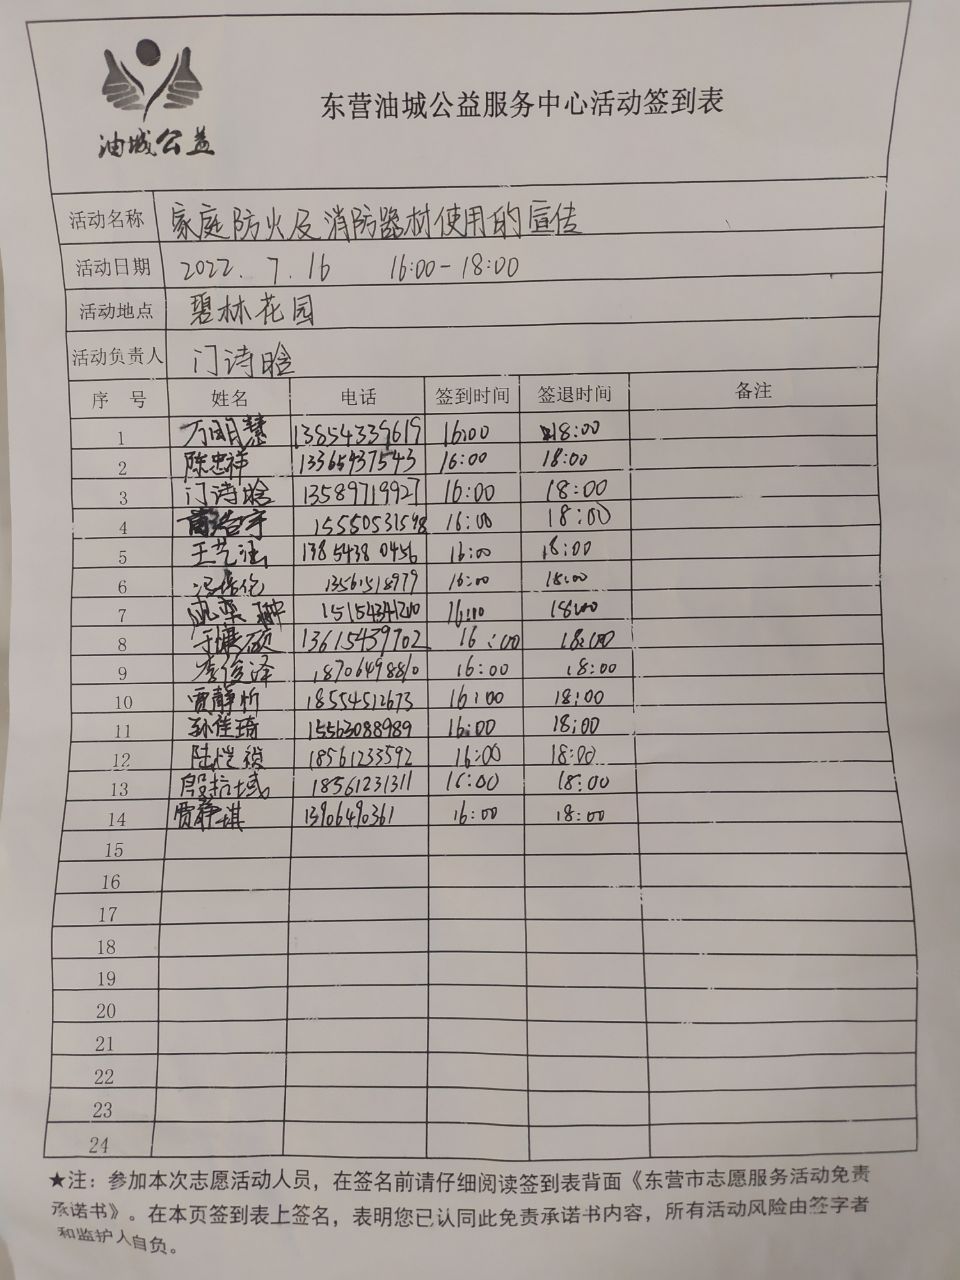 油城公益
东营油城公益服务中心活动签到表
活动名称 家庭防火及消防器材使用的宣传
活动日期 2022.7.16 16:00-18:00
活动地点 碧林花园
活动负责人 门诗晗
序号 姓名 电话 签到时间 签退时间 备注
1 万明慧 13854339619 16:00 18:00
2 陈忠祥 13365437543 16:00 18:00
3 门诗晗 13589719927 16:00 18:00
4 15550531598 16:00 18:00
5 王艺涵 13854380456 16:00 18:00
6 13561518979 16:00 18:00
7 16:00 18:00
8 于康硕 13615439702 16:00 18:00
9 李俊泽 18706498810 16:00 18:00
10 贾静忻 18554512673 16:00 18:00
11 孙佳琦 15563088989 16:00 18:00
12 陆恺祯 18561233592 16:00 18:00
13 殷拓域 18561231311 16:00 18:00
14 贾静琪 13906490361 16:00 18:00
15
16
17
18
19
20
21
22
23
24
★注：参加本次志愿活动人员，在签名前请仔细阅读签到表背面《东营市志愿服务活动免责
承诺书》。在本页签到表上签名，表明您已认同此免责承诺书内容，所有活动风险由签字者
和监护人自负。